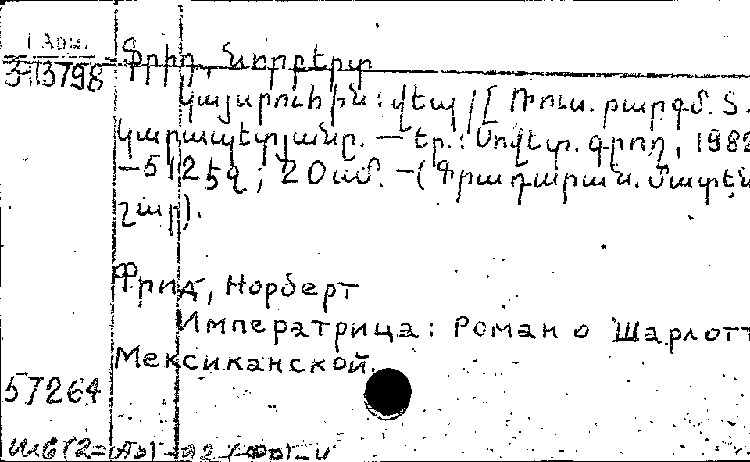 1 Հօմ.
3113798 Ֆրիդ, Նորբերտ
Կայսրուհին: Վեպ / [Ռուս. բարգմ. Տ.
Կարապետյանը. — Եր.: Սովետ. գրող, 1982
— 512 էջ; 20 սմ. — (Գրադարան. մատեն
շար).
Фрид, Норберт
Императрица: Роман о Шарлотт
Мексиканской.
57264